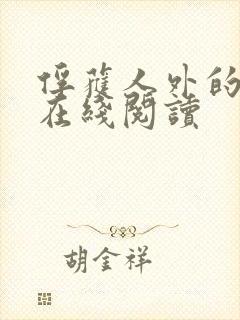 俘獲人外的
在綫閱讀
胡金祥